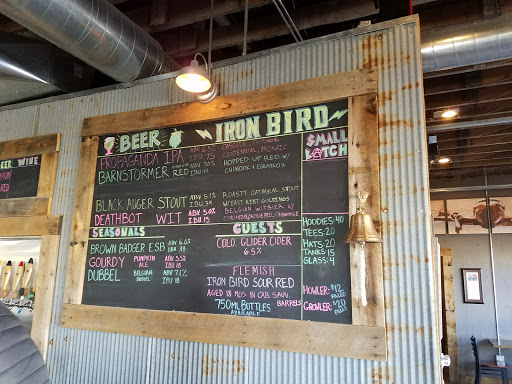 BEER WINE
RED
BEER
IRON BIRD
SMALL
BATCH
PROPAGANDA IPA ABV 6.5%
IBU 75
CENTENNIAL, MOSAIC
BARNSTORMER RED
IBU 44
HOPPED UP RED W/
CHINOOK & EQUINOX
BLACK AUGER STOUT ABV 5.1%
IBU 39
ROASTY OATMEAL STOUT
W/ EAST KENT GOLDINGS
DEATHBOT WIT ABV 5.0%
IBU 15
BELGIAN WITBIER W/
CORIANDER, ORANGE PEEL, CHAMOMILE
SEASONALS
BROWN BADGER ESB ABV 6.0%
IBU 39
GOURDY PUMPKIN ALE ABV 5%
IBU 18
DUBBEL BELGIAN DUBBEL ABV 7.1%
IBU 18
GUESTS
COLO. GLIDER CIDER
6.5%
FLEMISH
IRON BIRD SOUR RED
AGED 18 MOS IN CAB. SAUV.
BARRELS
750ML BOTTLES
AVAILABLE
HOODIES: 40
TEES: 20
HATS: 20
TANKS: 15
GLASS: 4
HOWLER: $12
FILLED
GROWLER: $20
FILLED